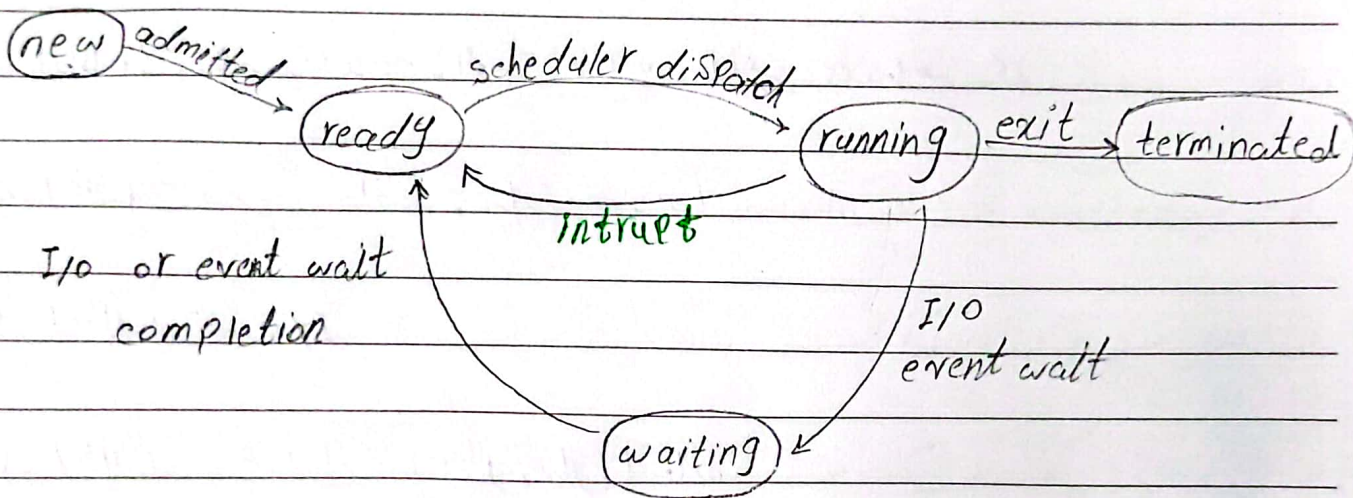 new
admitted
scheduler dispatch
ready
running
exit
terminated
intrupt
I/O or event wait
completion
I/O
event wait
waiting